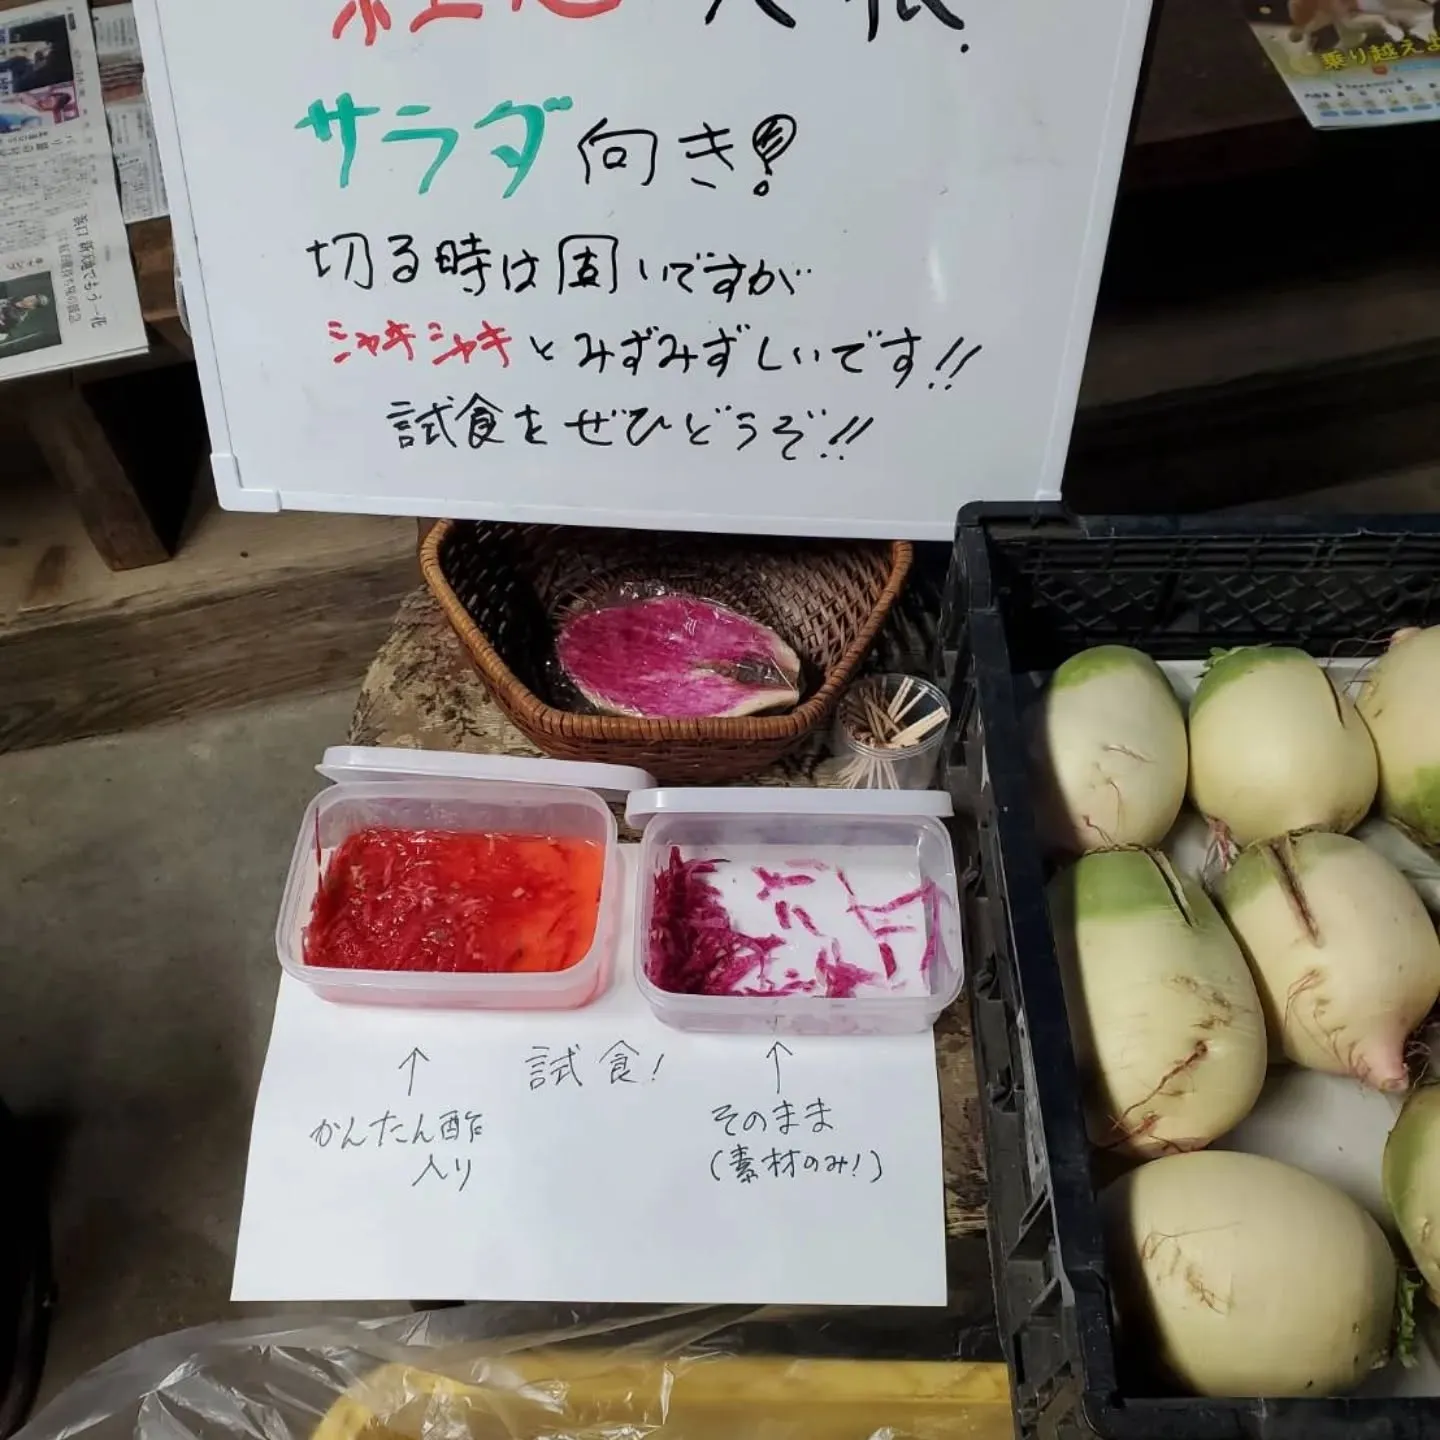 紅心大根.
サラダ向き!
切る時は固いですが
シャキシャキとみずみずしいです!!
試食をぜひどうぞ!!
試食!
↑
かんたん酢
入り
↑
そのまま
(素材のみ!)
乗り越えよ